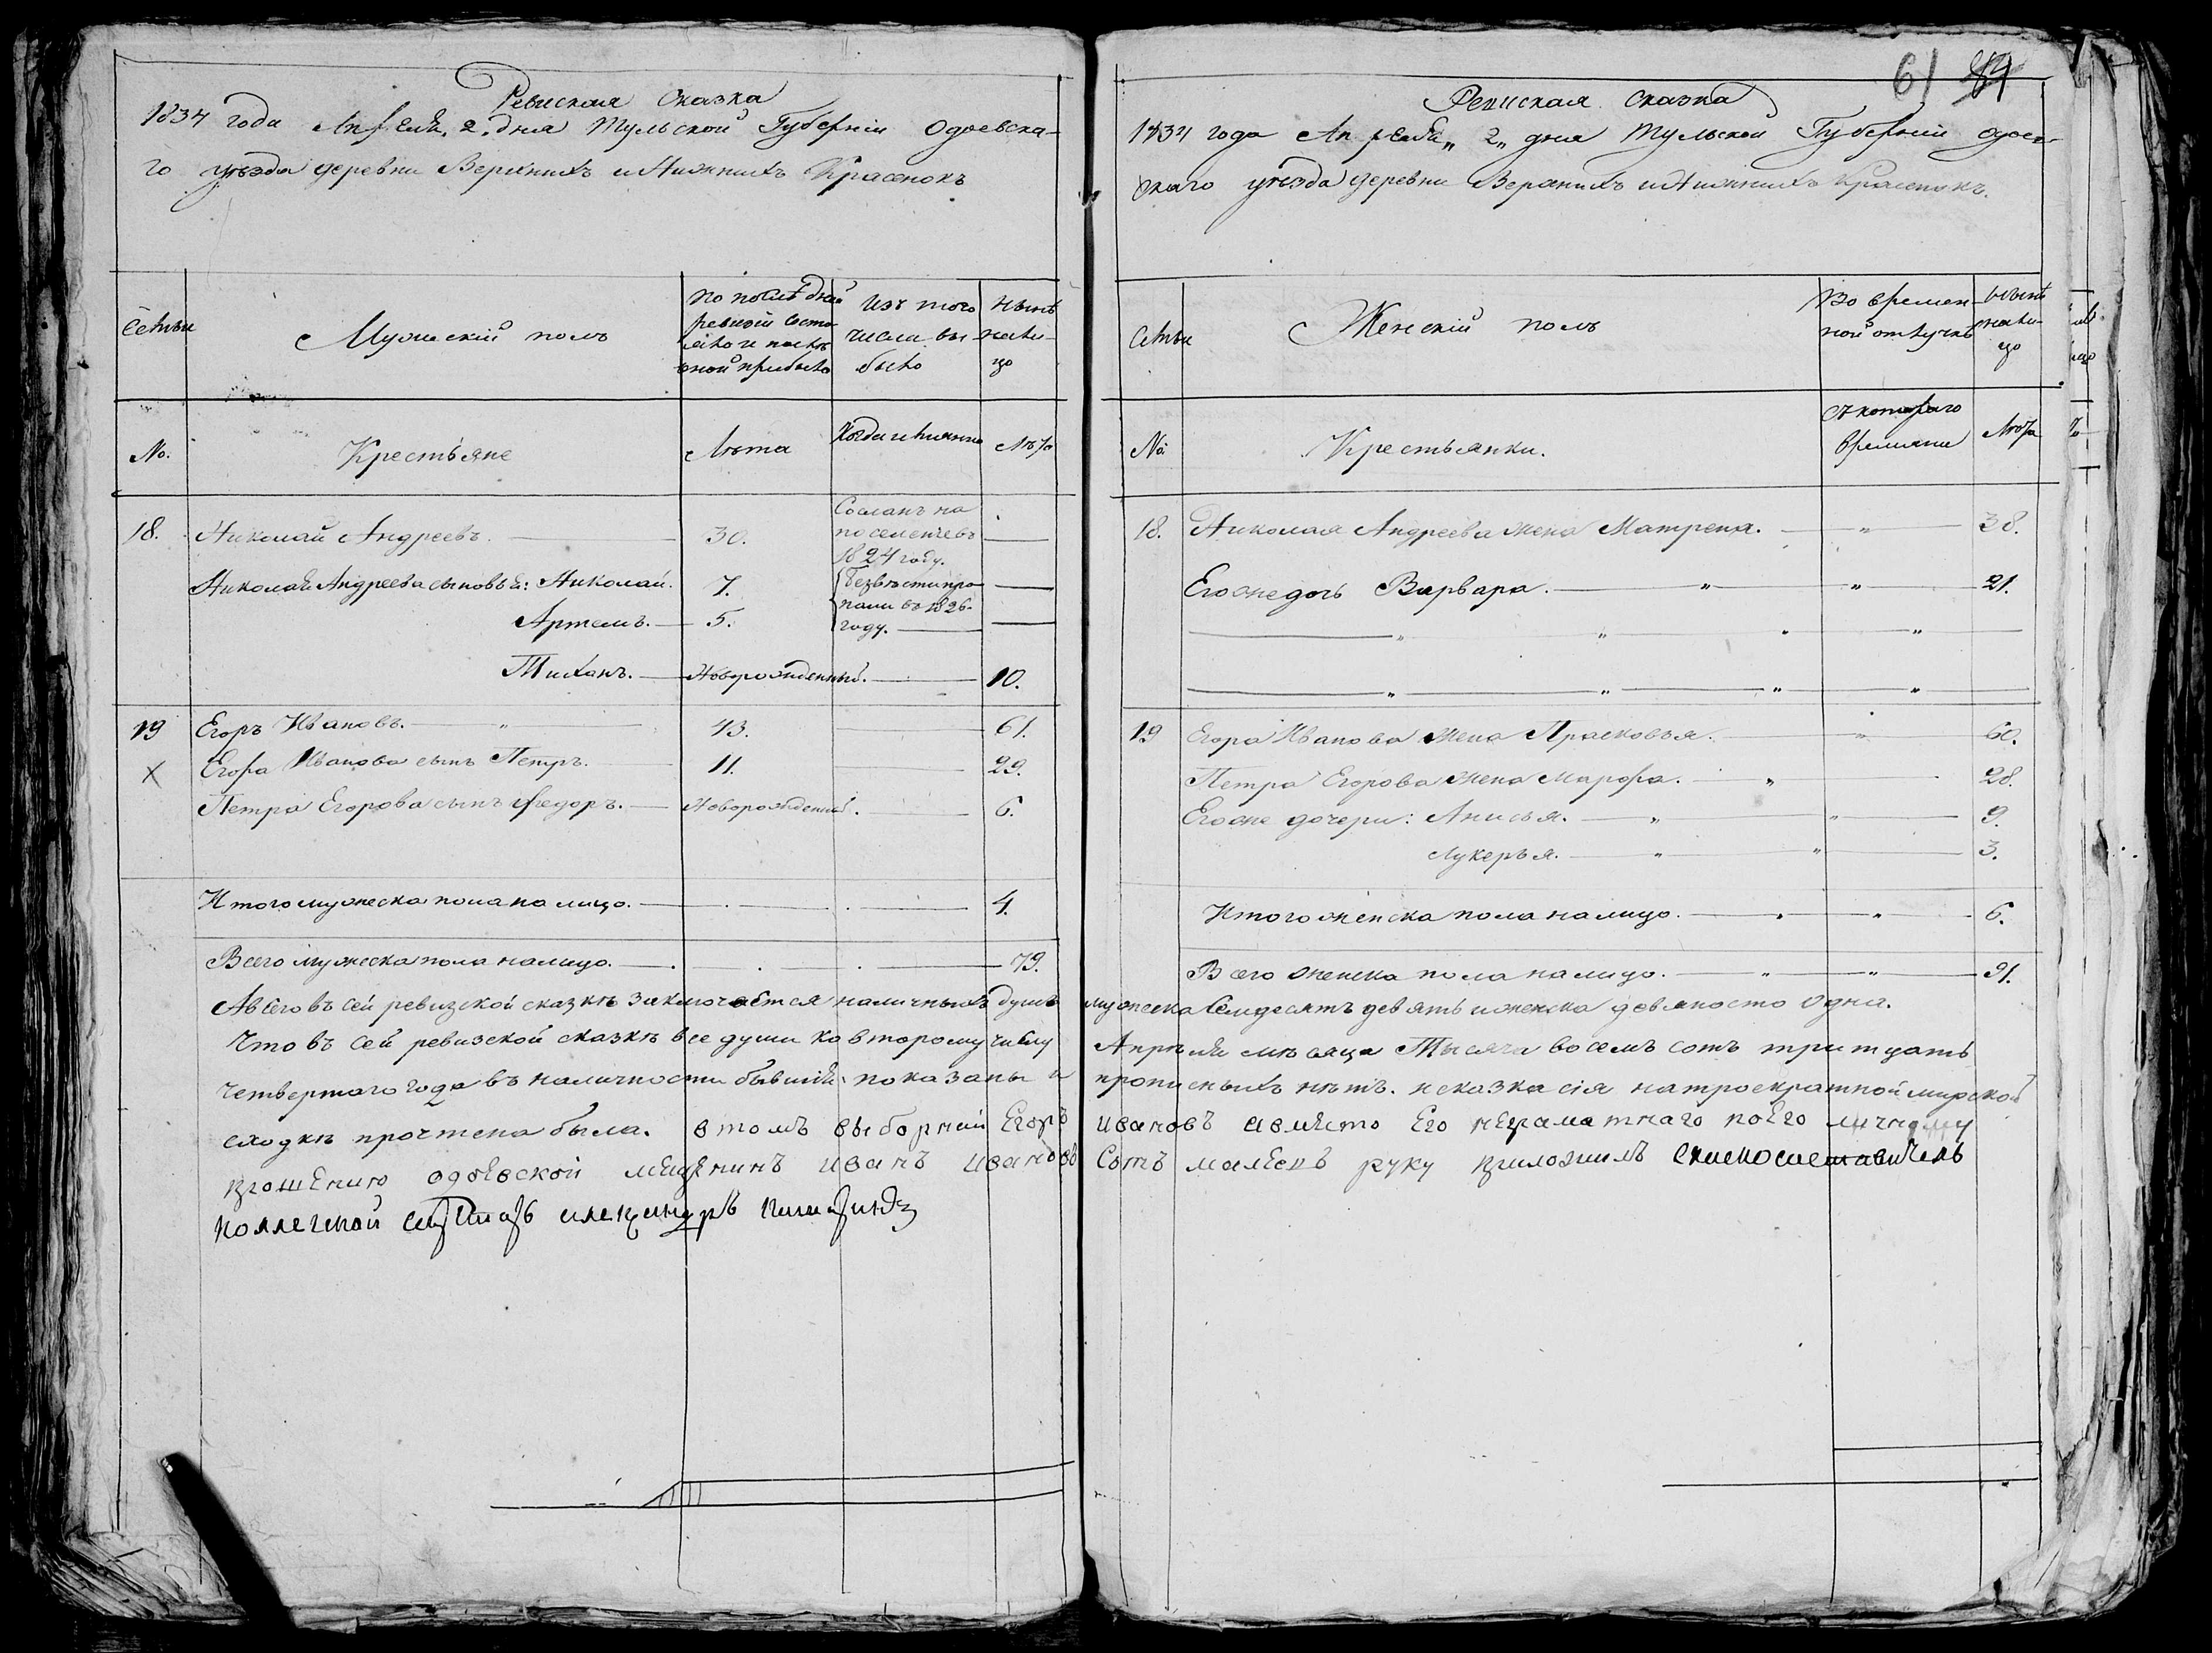 Ревиская Сказка
1834 года Апреля 2. дня Тульской Губерніи Одоевска-
го уезда деревни Верхнихъ и Нижнихъ Красенокъ
Семьи
Мужескій полъ
По последней
ревизіи состо
яло и после
оной прибыло
Изъ того
числа вы-
было
Ныне
нали-
цо
№.
Крестьяне
Лета
Когда именно
Лета
18.
Николай Андреевъ.
30.
Сосланъ на
поселение въ
1824 году.
Николая Андреева сыновья: Николай.
7.
Безвести про
пали въ 1826
году.
Артемъ.
5.
Тиханъ.
Новорожденный.
10.
19
Егоръ Ивановъ.
43.
61.
X
Егора Иванова сынъ Петръ.
11.
29.
Петра Егорова сынъ Федоръ.
Новорожденный.
6.
Итого мужеска пола на лицо.
4.
Всего мужеска пола на лицо.
79.
61 84
Ревиская Сказка
1834 года Апреля "2" дня Тульской Губерніи Одоев-
скаго уезда деревни Верхнихъ и Нижнихъ Красенокъ.
Семьи
Женскій полъ
Во времен-
ной отлучке
Ныне
нали-
цо
№
Крестьянки.
Съ котораго
времяни
Лета
18.
Николая Андреева жена Матрена.
38.
Его же дочь Варвара.
21.
19
Егора Иванова жена Прасковья.
60.
Петра Егорова жена Марфа.
28.
Его же дочери: Анисья.
9.
Лукерья.
3.
Итого женска пола на лицо.
6.
Всего женска пола на лицо.
91.
А всего въ сей ревизской сказкѣ заключается наличныхъ душъ мужеска Семдесятъ девять и женска девяносто одна.
Что въ сей ревизской сказкѣ все души ко второму числу Апрѣля мѣсяца Тысяча восемь сотъ тритцать
четвертаго года въ наличности бывшія показаны и прописныхъ нѣтъ. и сказка сія на троекратной мирской
сходкѣ прочтена была. в томъ выборный Егоръ Ивановъ авместо Его неграматнаго по Его личному
прошению одоевской мещенинъ Иванъ Ивановъ Сынъ руку приложилъ
коллегской